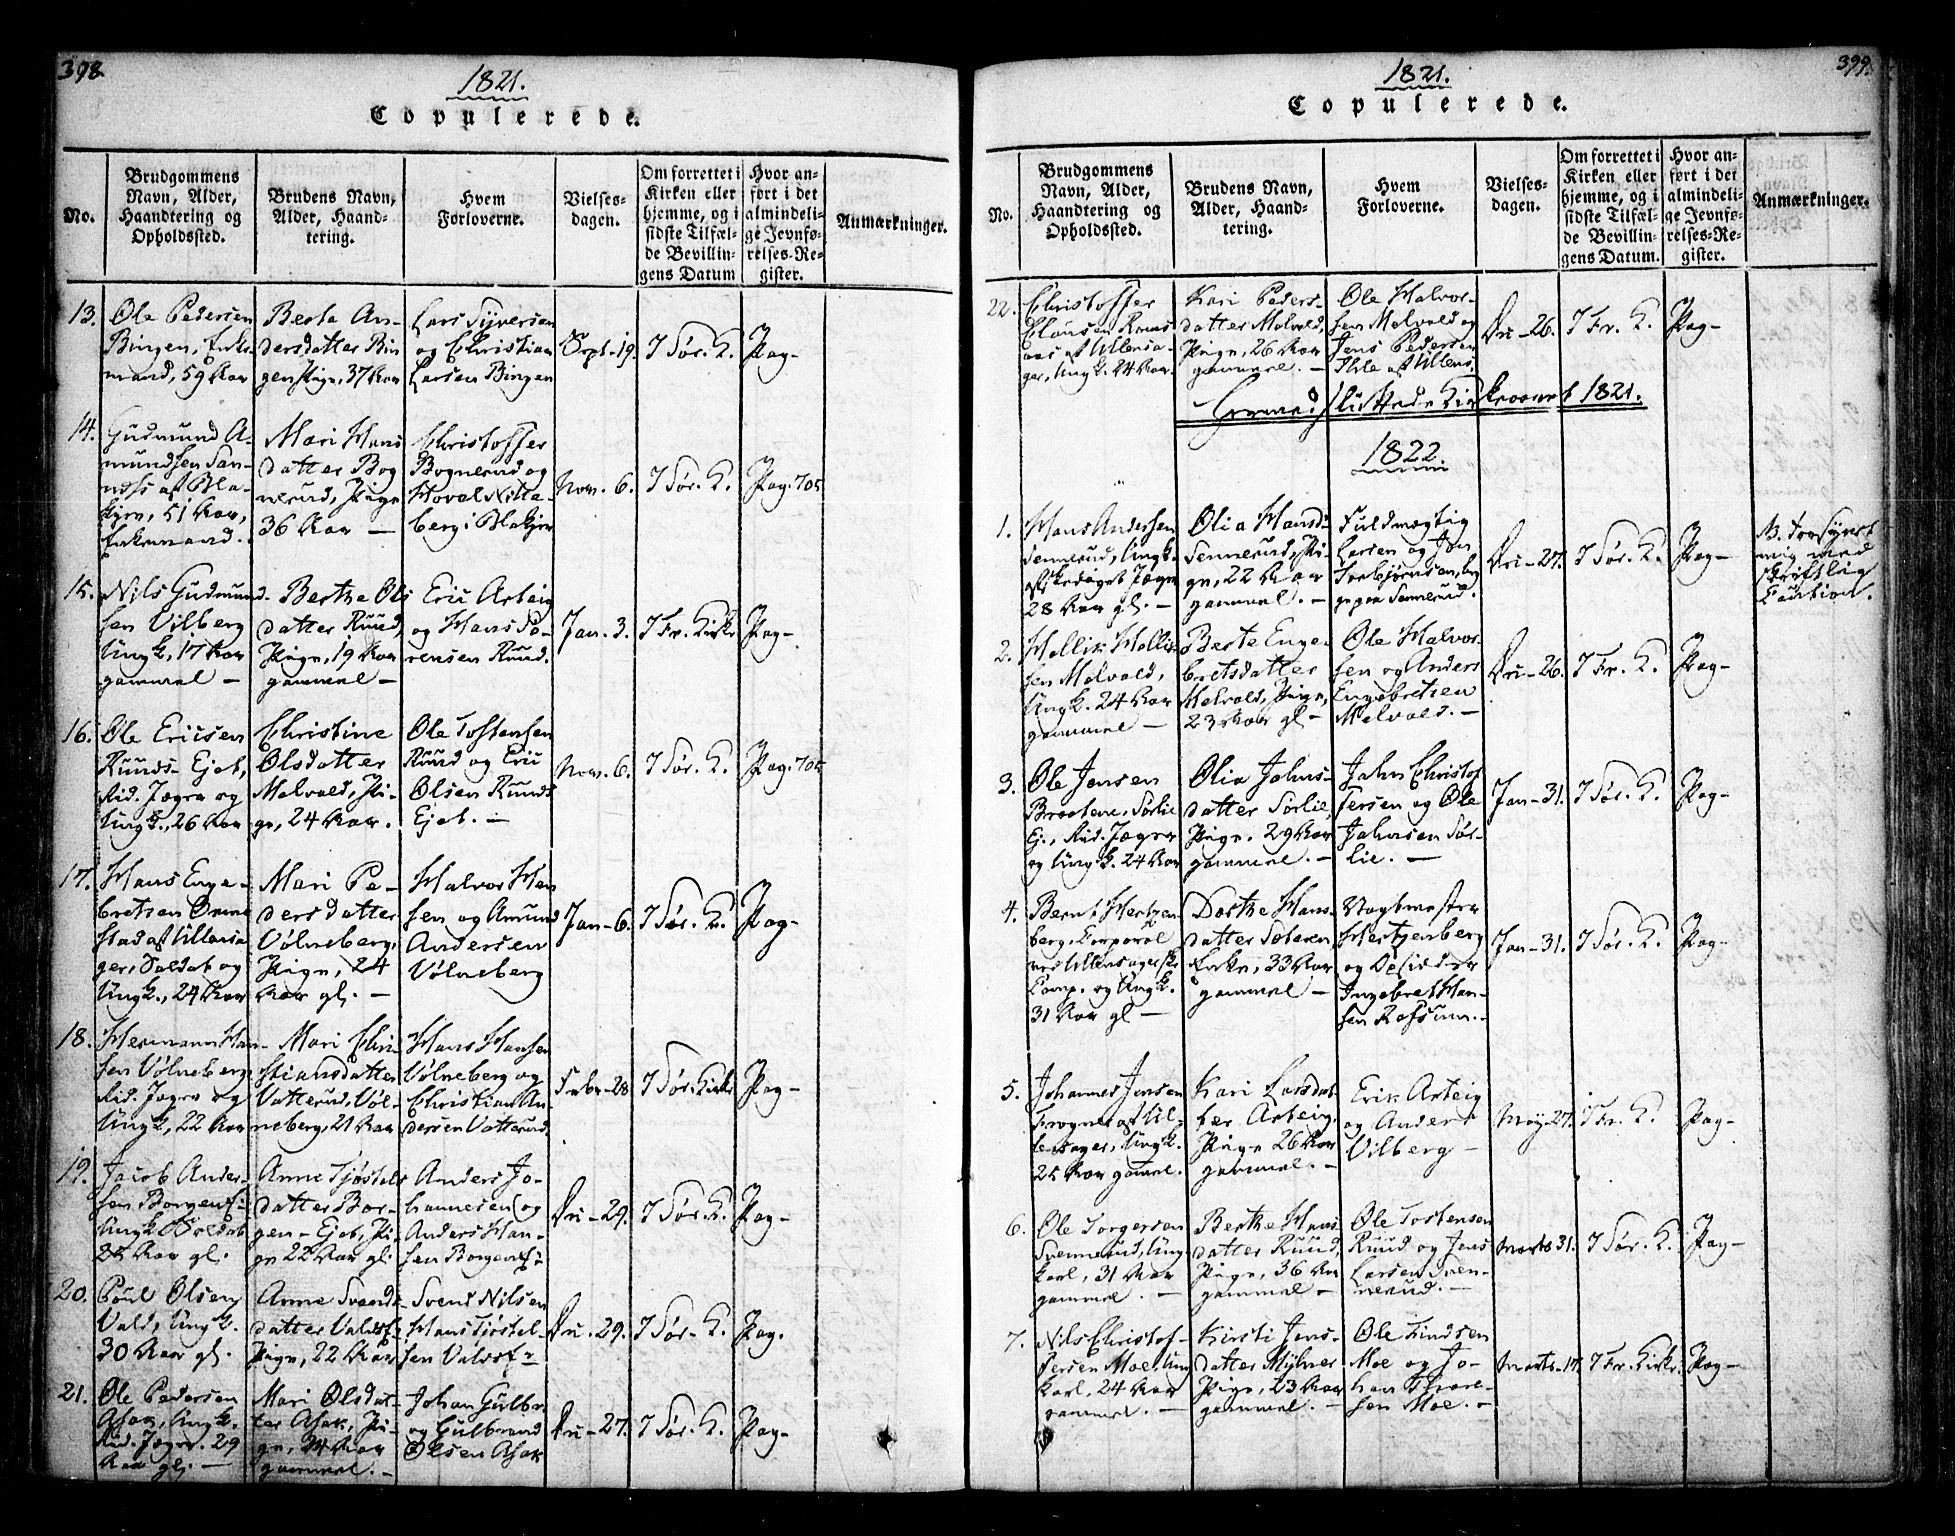 398.
1821.
Copulerede.
No.
Brudgommens
Navn, Alder,
Haandtering og
Opholdssted.
Brudens Navn,
Alder, Haand-
tering.
Hvem
Forloverne.
Vielses-
dagen.
Om forrettet i
Kirken eller
hjemme, og i
sidste Tilfæl-
de Bevillin-
gens Datum
Hvor an-
ført i det
almindeli-
ge Jevnfø-
relses-Re-
gister.
Anmærkninger.
13.
Ole Pedersen
Bingen, Enke-
mand, 59 Aar
Berte An-
dersdatter Bin-
gen Pige, 37 Aar
Lars Syversen
og Christian
Larsen Bingen
Sept. 19.
I Sør. K.
Pag-
14.
Gudmund A-
mundsen San-
af Bla-
kjer, 51 Aar,
Enkemand.
Mari Hans
datter Bog
nerud, Pige
36 Aar —
Christoffer
Bognerud og
Hoval Nitte-
berg i Blakjer
Nov. 6.
I Sør. K.
Pag. 705
15.
Nils Gudmund-
sen Vilberg
Ungk., 17 Aar
gammel —
Berthe Ols
datter Ruud,
Pige, 19 Aar
gammel —
Eric Arteig
og Hans Sö-
rensen Ruud.
Jan. 3.
I Fr. Kirke
Pag-
16.
Ole Ericsen
Ruuds- Ejet,
Rid. Jæger og
Ungk., 26 Aar
Christine
Olsdatter
Melvold, Pi-
ge, 24 Aar.
Ole Tostensen
Ruud og Eric
Olsen Ruuds
Ejet. —
Nov. 6.
I Sør. K.
Pag. 705
17.
Hans Enge-
bretsen Onne
stad af Ullensa
ger, Soldat og
Ungk., 24 Aar
Mari Pe-
dersdatter
Völneberg,
Pige, 24
Aar gl. —
Halvor Han
sen og Amund
Andersen
Völneberg
Jan-6.
I Sør. K.
Pag-
18.
Hermann Han-
sen Völneberg
Rid. Jæger og
Ungk., 22 Aar
Mari Chri-
stiansdatter
Vatterud, Völ-
neberg, 21 Aar
Hans Hansen
Völneberg og
Christian An
dersen Vatterud.
Febr-28
I Sør. Kirke
Pag-
19.
Jacob Ander-
sen
Ungk. Soldat
25 Aar gl.
Anne Tjøstels
datter Bor-
gen- Ejet, Pi-
ge 22 Aar gl.
Anders Jo-
hannesen og
Anders Han-
sen
29.
I Sør. K.
Pag-
20.
Poul Olsen
Vald, Ungk.
30 Aar gl.
Anne Svends
datter
Pige, 22 Aar
Svend Nilsen
Hans Tjøstel-
sen
29.
I Sør. K.
Pag.
21.
Ole Pedersen
Asak, Ungk.
Rid. Jæger. 29
Aar gl. —
Mari Olsdat-
ter Asak, Pi-
ge, 24 Aar
gammel. —
Johan Gulbr.
og Gulbrand
Olsen Asak
27.
I Sør. K.
Pag-
399.
1821.
Copulerede.
No.
Brudgommens
Navn, Alder,
Haandtering og
Opholdssted.
Brudens Navn,
Alder, Haand-
tering.
Hvem
Forloverne.
Vielses-
dagen.
Om forrettet i
Kirken eller
hjemme, og i
sidste Tilfæl-
de Bevillin-
gens Datum.
Hvor an-
ført i det
almindeli-
ge Jevnfø-
relses-Re-
gister.
Anmærkninger.
22.
Christoffer
Clausen
af Ullensa-
ger, Ungk. 24 Aar.
Kari Peders-
datter Melvold,
Pige, 26 Aar
gammel. —
Ole Halvor-
sen Melvold og
Jens Pedersen
af Ullens.
26.
I Fr. K.
Pag-
Hermed sluttede Kirkeaaret 1821.
1822
1.
Hans Andersen
Sennerud, Ungk.
Jæger
28 Aar gl. —
Olia Hansd.
Sennerud, Pi-
ge, 22 Aar
gammel. —
Fuldmægtig
Larsen og Jon
Torbjörnsen,
Sennerud.
27.
I Sør. K.
Pag-
mig med
skriftlig
Caution.
2.
Mellik Mellik
sen Melvold,
Ungk. 24 Aar
gammel —
Berte Enge-
bretsdatter
Melvold, Pige,
23 Aar gl —
Ole Halvor
sen og Anders
Engebretsen
Melvold. —
26.
I Fr. K.
Pag-
3.
Ole Jensen
Braatene, Sørlie
Ej., Rid. Jæger
og Ungk. 24 Aar
Olia Johns-
datter Sörlie,
Pige. 29 Aar
gammel. —
John Christof
fersen og Ole
Johnsen Sör-
lie. —
Jan-31.
I Sør. K.
Pag-
4.
Bernt Hertzen
berg, Corporal
ved Ullensagerske
Comp. og Ungk.
31 Aar gl —
Dorthe Hans-
datter
Enke, 33 Aar
gammel —
Vagtmester
Hertzenberg
og
Ingebret Han-
sen
Jan-31.
I Sør. K.
Pag-
5.
Johannes Jensen
Frogner af Ul-
lensager, Ungk.
25 Aar gamel.
Kari Larsdat
ter Arteig,
Pige 26 Aar
gammel. —
Erik Arteig
og Anders
Vilberg —
May-27.
I Fr. K.
Pag-
6.
Ole Torgersen
Svennerud, Ung
karl, 31 Aar
gammel. —
Berthe Hans
datter Ruud,
Pige, 36 Aar
gammel —
Ole Tostensen
Ruud og Jens
Larsen Sven-
nerud. —
Marts 31.
I Sør. K.
Pag-
7.
Nils Christof-
fersen Moe, Ung
karl, 24 Aar
gammel. —
Kirsti Jens-
datter Mylner
Pige, 23 Aar
gammel. —
Ole Lindsen
Moe og Jo-
han Thore-
sen Moe. —
Marts-17.
I Fr. Kirke.
Pag-